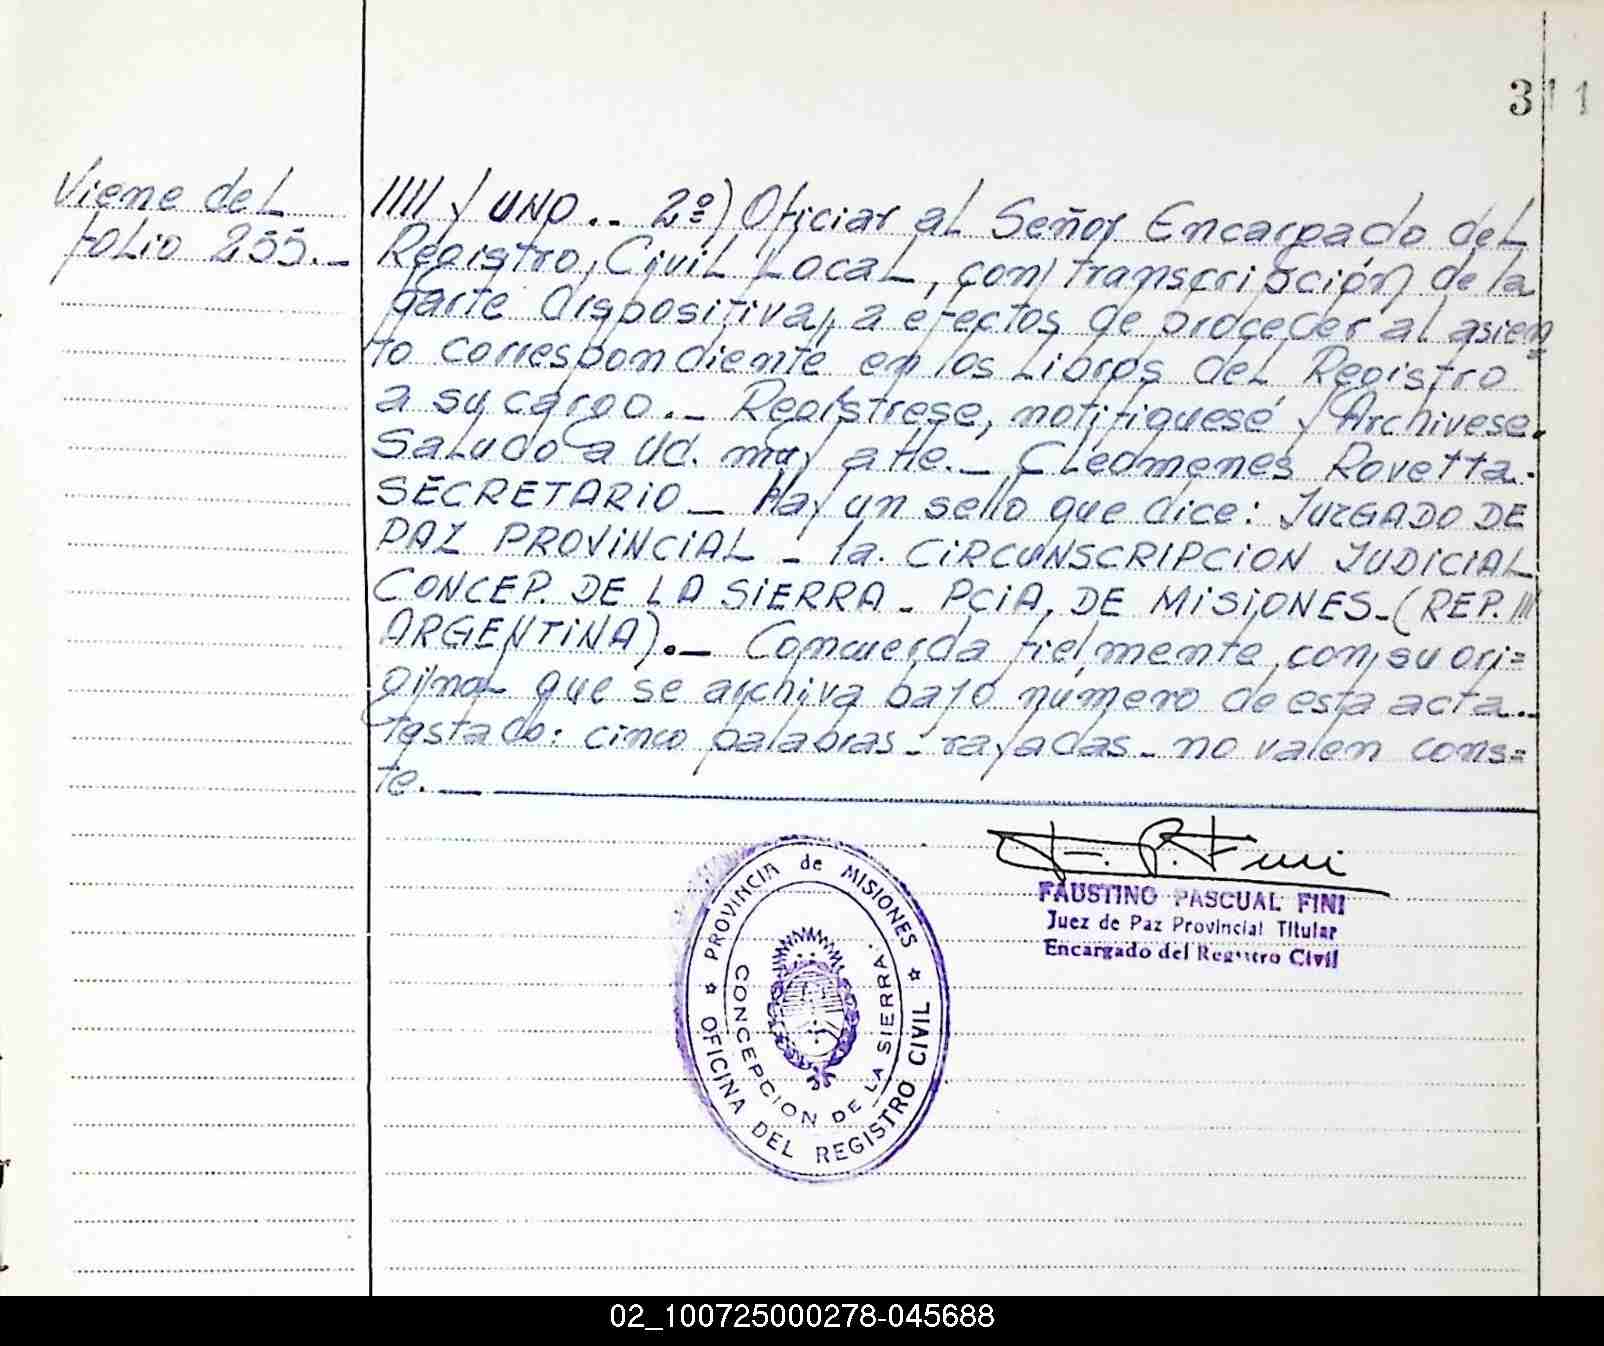 311
Viene del
folio 255._
//// y UNO.. 2º) Oficiar al Señor Encargado del
Registro Civil Local, con transcripción de la
parte dispositiva, a efectos de proceder al asien=
to correspondiente en los Libros del Registro
a su cargo._ Regístrese, notifiquese y Archivese.
Saludo a Ud. muy atte._ Cleomenes Rovetta.
SECRETARIO_ Hay un sello que dice: JUZGADO DE
PAZ PROVINCIAL - 1a. CIRCUNSCRIPCION JUDICIAL
CONCEP. DE LA SIERRA - PCIA. DE MISIONES-(REP. ///
ARGENTINA)._ Concuerda fielmente con su ori=
ginal que se archiva bajo número de esta acta..
Testado: cinco palabras - rayadas - no valen cons=
te._
F. P. Fini
FAUSTINO PASCUAL FINI
Juez de Paz Provincial Titular
Encargado del Registro Civil
PROVINCIA de MISIONES
OFICINA DEL REGISTRO CIVIL
CONCEPCION DE LA SIERRA.
02_100725000278-045688